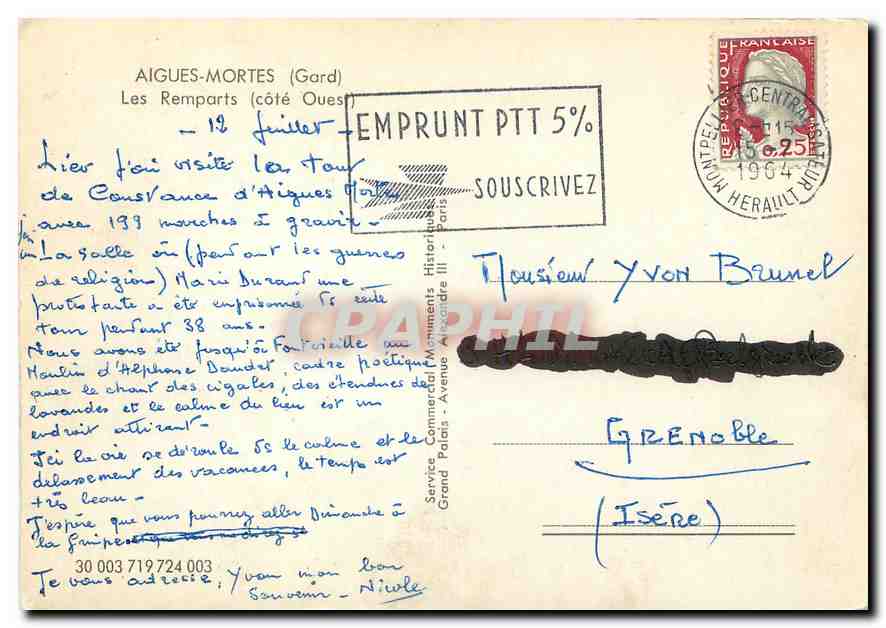 AIGUES-MORTES (Gard)
Les Remparts (côté Ouest)
- 12 Juillet -
Hier j'ai visité la tour
de Constance d'Aigues Mortes
avec 199 marches à gravir -
La salle où (pendant les guerres
de religion) Marie Durand une
protestante a été emprisonnée ds cette
tour pendant 38 ans.
Nous avons été jusqu'à Fontvieille au
Moulin d'Alphonse Daudet, cadre poétique
avec le chant des cigales, des étendues de
lavandes et le calme du lieu est un
endroit attirant -
Ici la vie se déroule ds le calme et le
délassement des vacances, le temps est
très beau -
J'espère que vous pourrez aller Dimanche à
la
30 003 719 724 003
Je vous adresse, Yvon mon bon
Souvenir - Nicole
EMPRUNT PTT 5%
SOUSCRIVEZ
REPUBLIQUE FRANÇAISE
0,25
MONTPELLIER-CENTRALISATEUR
15
1964
HERAULT
Service Commercial Monuments Historiques
Grand Palais - Avenue Alexandre III - Paris
Monsieur Yvon Brunel
GRENOBLE
(Isère)
CPAPHIL